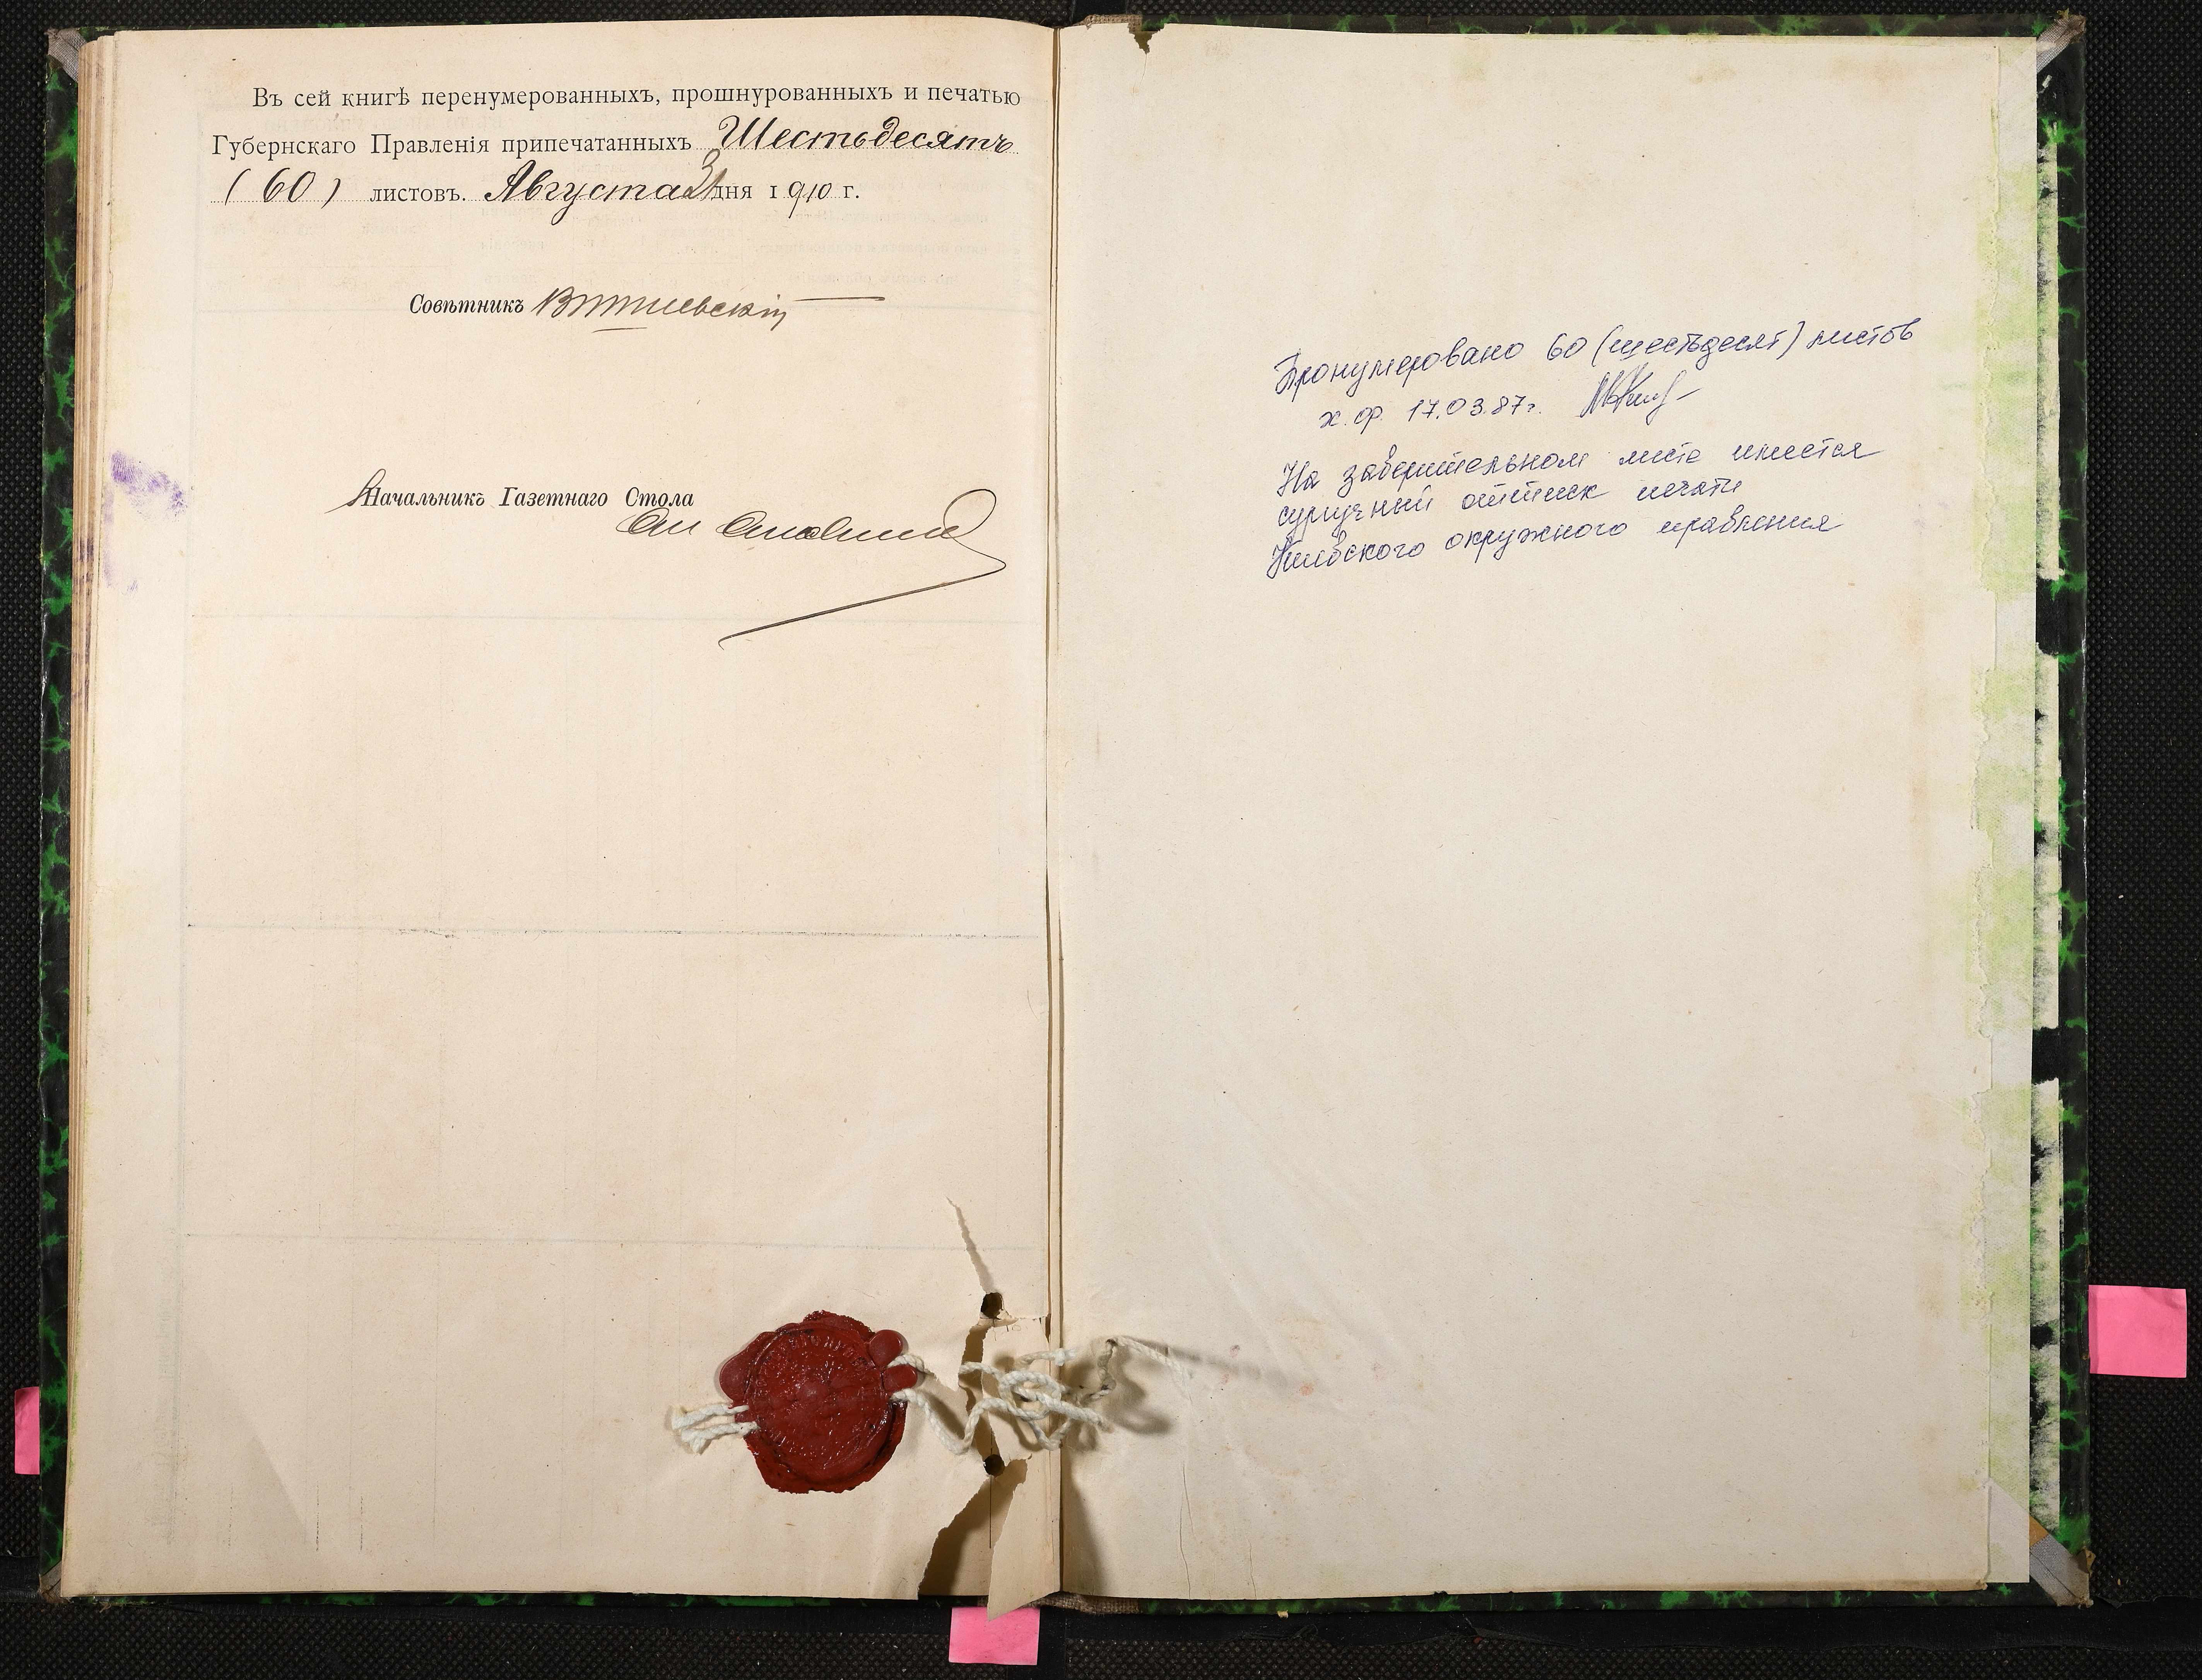 Въ сей книгѣ перенумерованныхъ, прошнурованныхъ и печатью
Губернскаго Правленія припечатанныхъ Шестьдесятъ
(60) листовъ. Августа 31 дня 1910 г.
Совѣтникъ
Начальникъ Газетнаго Стола
Пронумеровано 60 (шестьдесят) листов
х.ф. 17.03.87г.
На заверительном листе имеется
сургучный оттиск печати
окружного правления